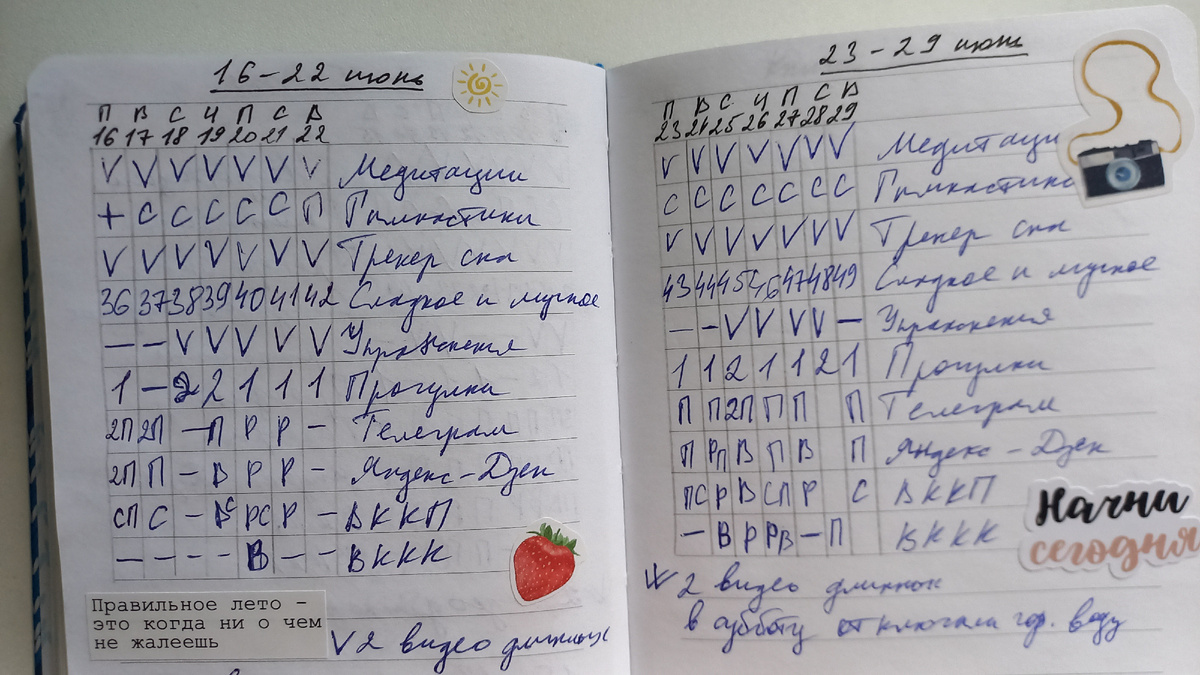 16-22 июнь
П В С Ч П С В
16 17 18 19 20 21 22
V V V V V V V Медитации
+ С С С С С П Гимнастики
V V V V V V V Трекер сна
36 37 38 39 40 41 42 Сладкое и мучное
— — V V V V V Упражнения
1 — 2 2 1 1 1 Прогулки
2П 2П — П Р Р — Телеграм
2П П — В Р Р — Яндекс-Дзен
СП С — ВС РС Р — ВККП
— — — — В — — ВККК
Правильное лето –
это когда ни о чем
не жалеешь
V 2 видео длинных
23-29 июнь
П В С Ч П С В
23 24 25 26 27 28 29
V V V V V V V Медитации
С С С С С С С Гимнастики
V V V V V V V Трекер сна
43 44 45 46 47 48 49 Сладкое и мучное
— — V V V V — Упражнения
1 1 2 1 1 2 1 Прогулки
П П 2П П П П Телеграм
П РП В П В П Яндекс-Дзен
ПС Р В СП Р С ВККП
— В Р РВ — П ВККК
Начни
сегодня
V 2 видео длинных
в субботу отключали гор. воду